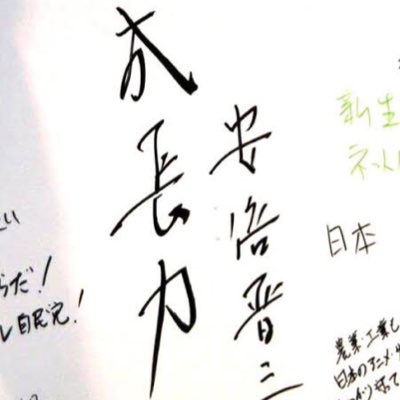 成長力
安倍晋三
新生
ネット
日本
農業・工業も
日本のアニメ・
らだ!
自民党!